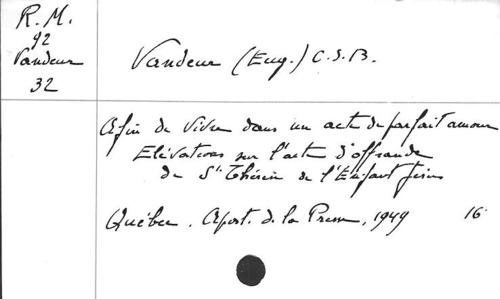 R. M.
92
Vandeur
32
Vandeur (Eug.) O.S.B.
Afin de vivre dans un acte de parfait amour
Elévations sur l'acte d'offrande
de Ste Thérèse de l'Enfant Jésus
Québec. Apost. de la Presse, 1949 16